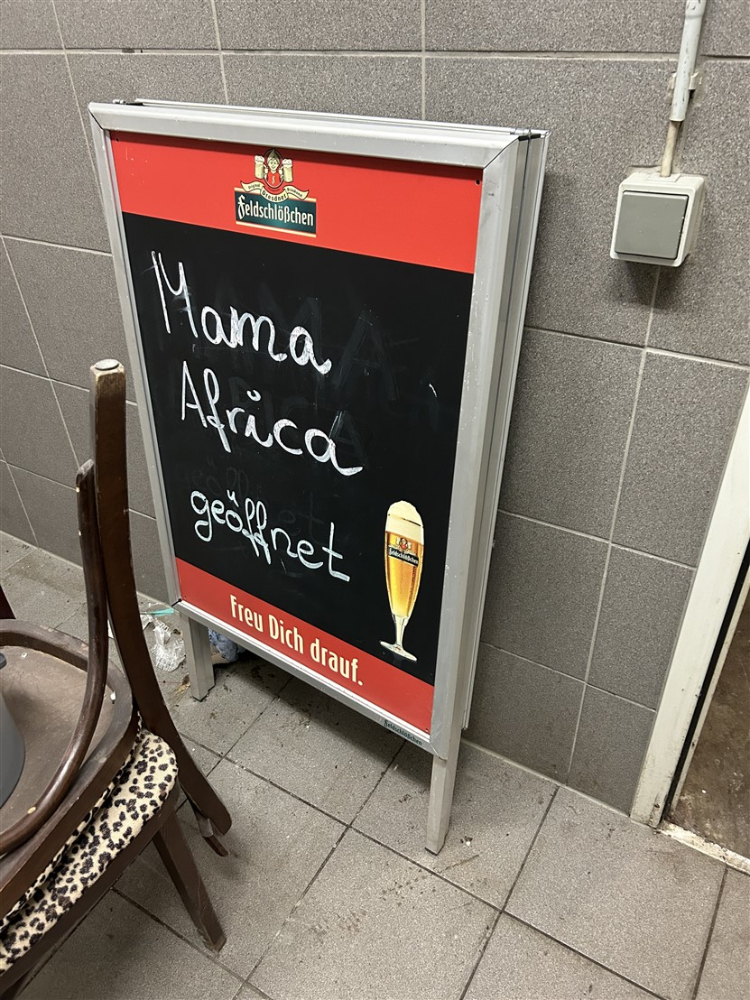 Feldschlößchen
Mama
Africa
geöffnet
Feldschlößchen
Freu Dich drauf.
Feldschlößchen